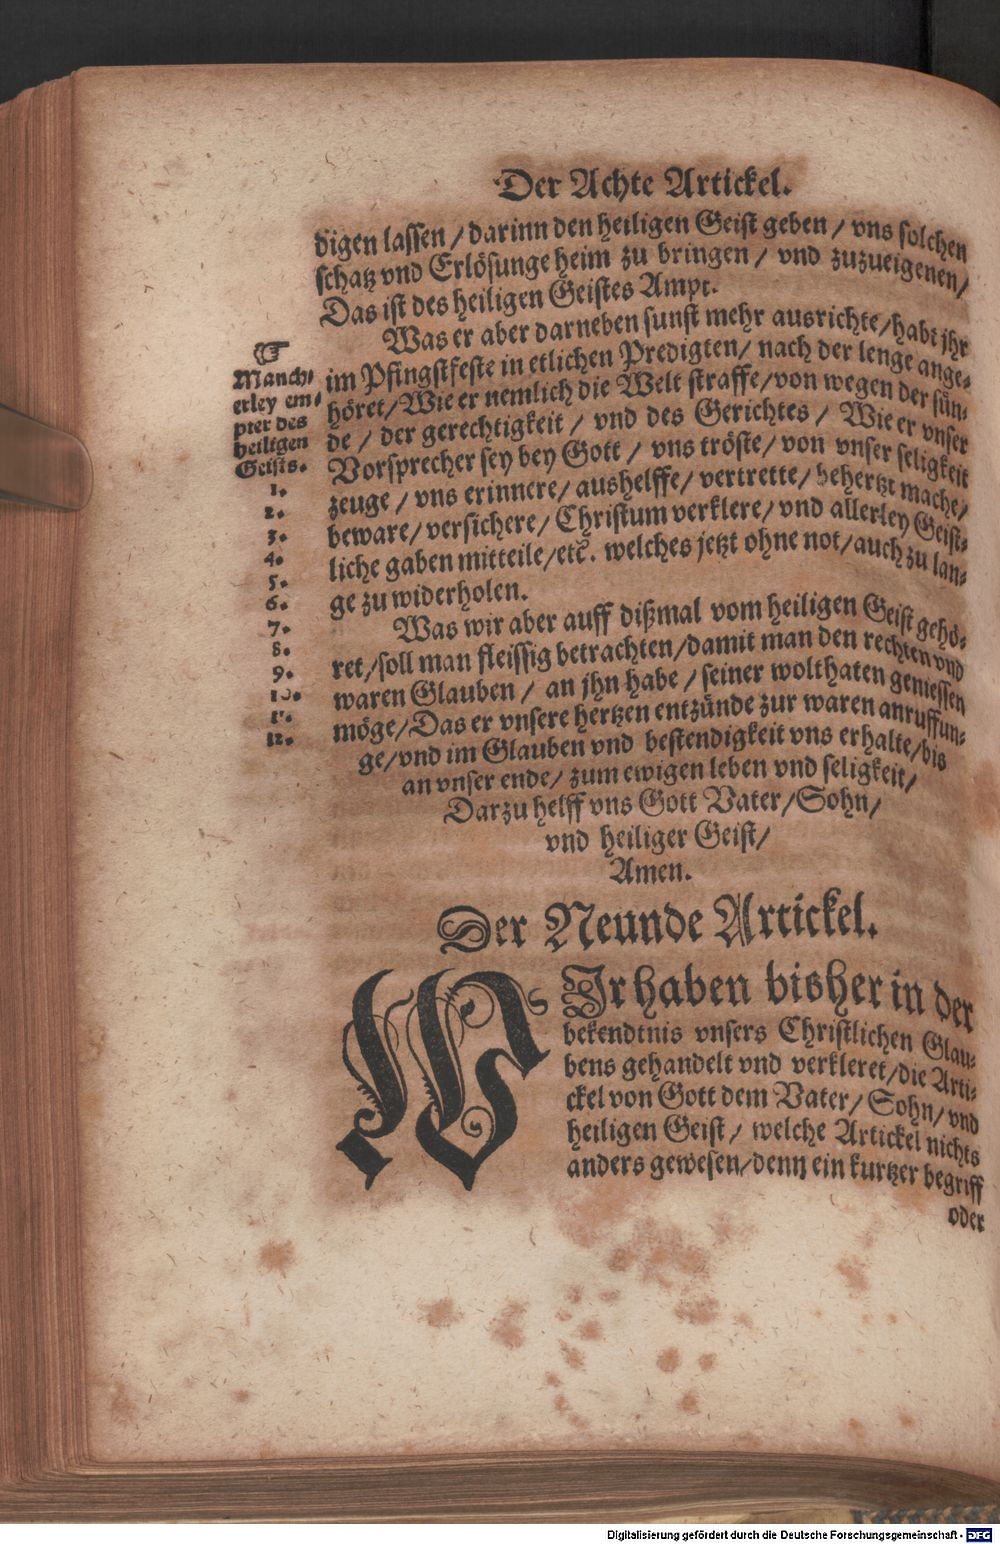 Der Achte Artickel.
digen lassen / darinn den heiligen Geist geben / vns solchen
schatz vnd Erlösunge heim zu bringen / vnd zuzueigenen /
Das ist des heiligen Geistes Ampt.
Was er aber darneben sunst mehr ausrichte / habt jhr
im Pfingstfeste in etlichen Predigten / nach der lenge ange-
höret / Wie er nemlich die Welt straffe / von wegen der sün-
de / der gerechtigkeit / vnd des Gerichtes / Wie er vnser
Vorsprecher sey bey Gott / vns tröste / von vnser seligkeit
zeuge / vns erinnere / aushelffe / vertrette / behertzt mache /
beware / versichere / Christum verklere / vnd allerley Geist-
liche gaben mitteile / etc. welches jetzt ohne not / auch zu lan-
ge zu widerholen.
Was wir aber auff dißmal vom heiligen Geist gehö-
ret / soll man fleissig betrachten / damit man den rechten vnd
waren Glauben / an jhn habe / seiner wolthaten geniessen
möge / Das er vnsere hertzen entzünde zur waren anruffun-
ge / vnd im Glauben vnd bestendigkeit vns erhalte / bis
an vnser ende / zum ewigen leben vnd seligkeit /
Darzu helff vns Gott Vater / Sohn /
vnd heiliger Geist /
Amen.
☞
Manch-
erley em-
pter des
heiligen
Geists.
1.
2.
3.
4.
5.
6.
7.
8.
9.
10.
11.
12.
Der Neunde Artickel.
WJr haben bisher in der
bekendtnis vnsers Christlichen Glau-
bens gehandelt vnd verkleret / die Arti-
ckel von Gott dem Vater / Sohn / vnd
heiligen Geist / welche Artickel nichts
anders gewesen / denn ein kurtzer begriff
oder
Digitalisierung gefördert durch die Deutsche Forschungsgemeinschaft - DFG